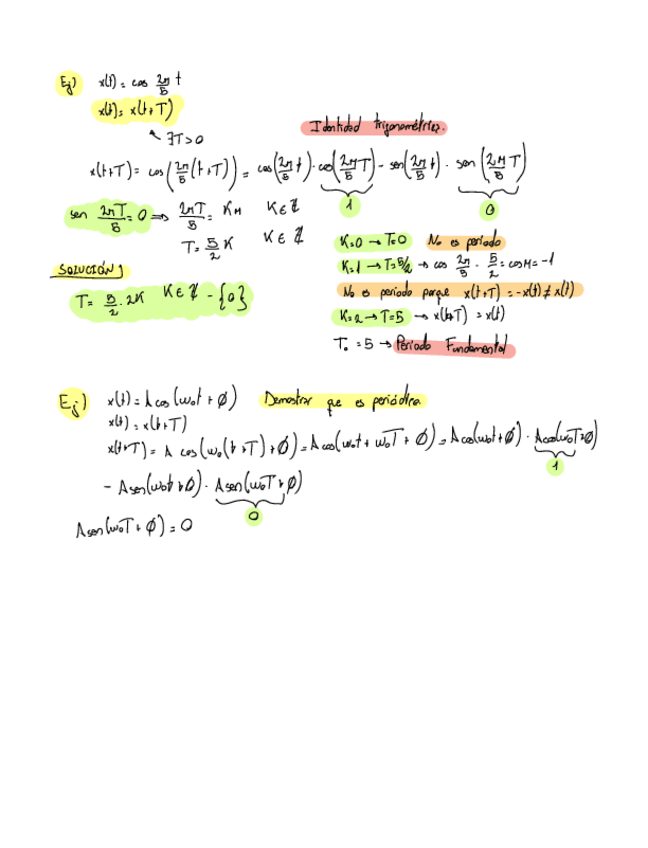 Ej) x(t) = cos 2π/5 t
x(t) = x(t+T)
↖ ∃T>0
Identidad trigonométrica.
x(t+T) = cos(2π/5 (t+T)) = cos(2π/5 t) · cos(2π/5 T) - sen(2π/5 t) · sen(2π/5 T)
1 0
sen 2πT/5 = 0 ⇒ 2πT/5 = Kπ K∈ℤ
T = 5/2 K K∈ℤ
SOLUCIÓN
T = 5/2 · 2K K∈ℤ - {0}
K=0 → T=0 No es periodo
K=1 → T=5/2 → cos 2π/5 · 5/2 = cos π = -1
No es periodo porque x(t+T) = -x(t) ≠ x(t)
K=2 → T=5 → x(t+T) = x(t)
T₀ = 5 → Periodo Fundamental
Ej) x(t) = A cos(ω₀t + ϕ) Demostrar que es periódica
x(t) = x(t+T)
x(t+T) = A cos(ω₀(t+T) + ϕ) = A cos(ω₀t + ω₀T + ϕ) = A cos(ω₀t + ϕ) · A cos(ω₀T + ϕ)
1
- A sen(ω₀t + ϕ) · A sen(ω₀T + ϕ)
0
A sen(ω₀T + ϕ) = 0